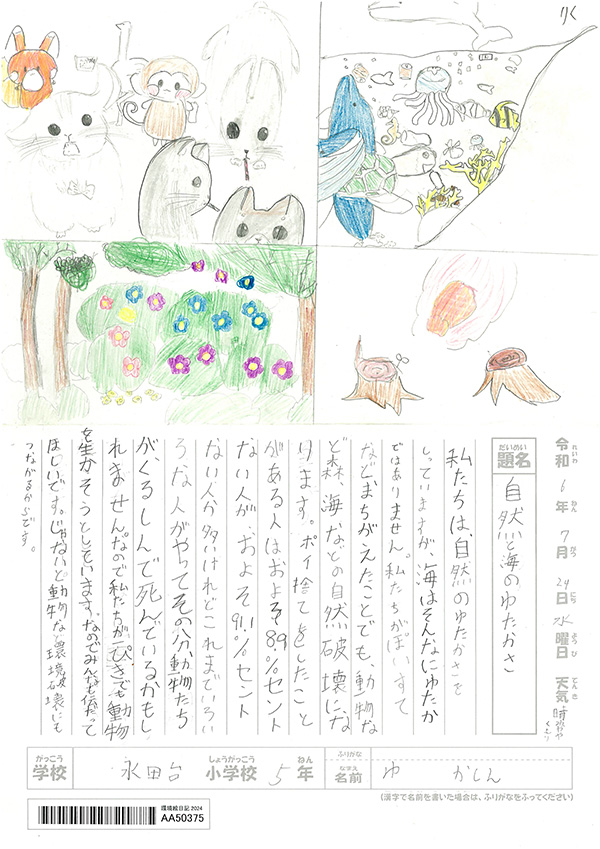 りく
れいわ ねん がつ にち ようび てんき
令和 6年 7月 24日 水曜日 天気 時々くもり
だいめい
題名 自然と海のゆたかさ
私たちは、自然のゆたかさを
しっていますが、海はそんなにゆたか
ではありません。私たちがぽいすて
などまちがえたことでも、動物な
ど森、海などの自然破壊にな
ります。ポイ捨てをしたこと
がある人はおよそ8.9%セント
ない人が、およそ91.1%セント
ない人が多いけれどこれまでいろい
ろな人がやってその分動物たち
が、くるしんで死んでいるかもし
れません。なので私たちが一ぴきでも動物
を生かそうとしています。なのでみんなも伝だって
ほしいです。じゃないと動物など環境破壊にも
つながるからです。
がっこう しょうがっこう ねん なまえ ふりがな
学校 永田台 小学校 5年 名前 ゆ かしん
(漢字で名前を書いた場合は、ふりがなをふってください)
環境絵日記 2024
AA50375